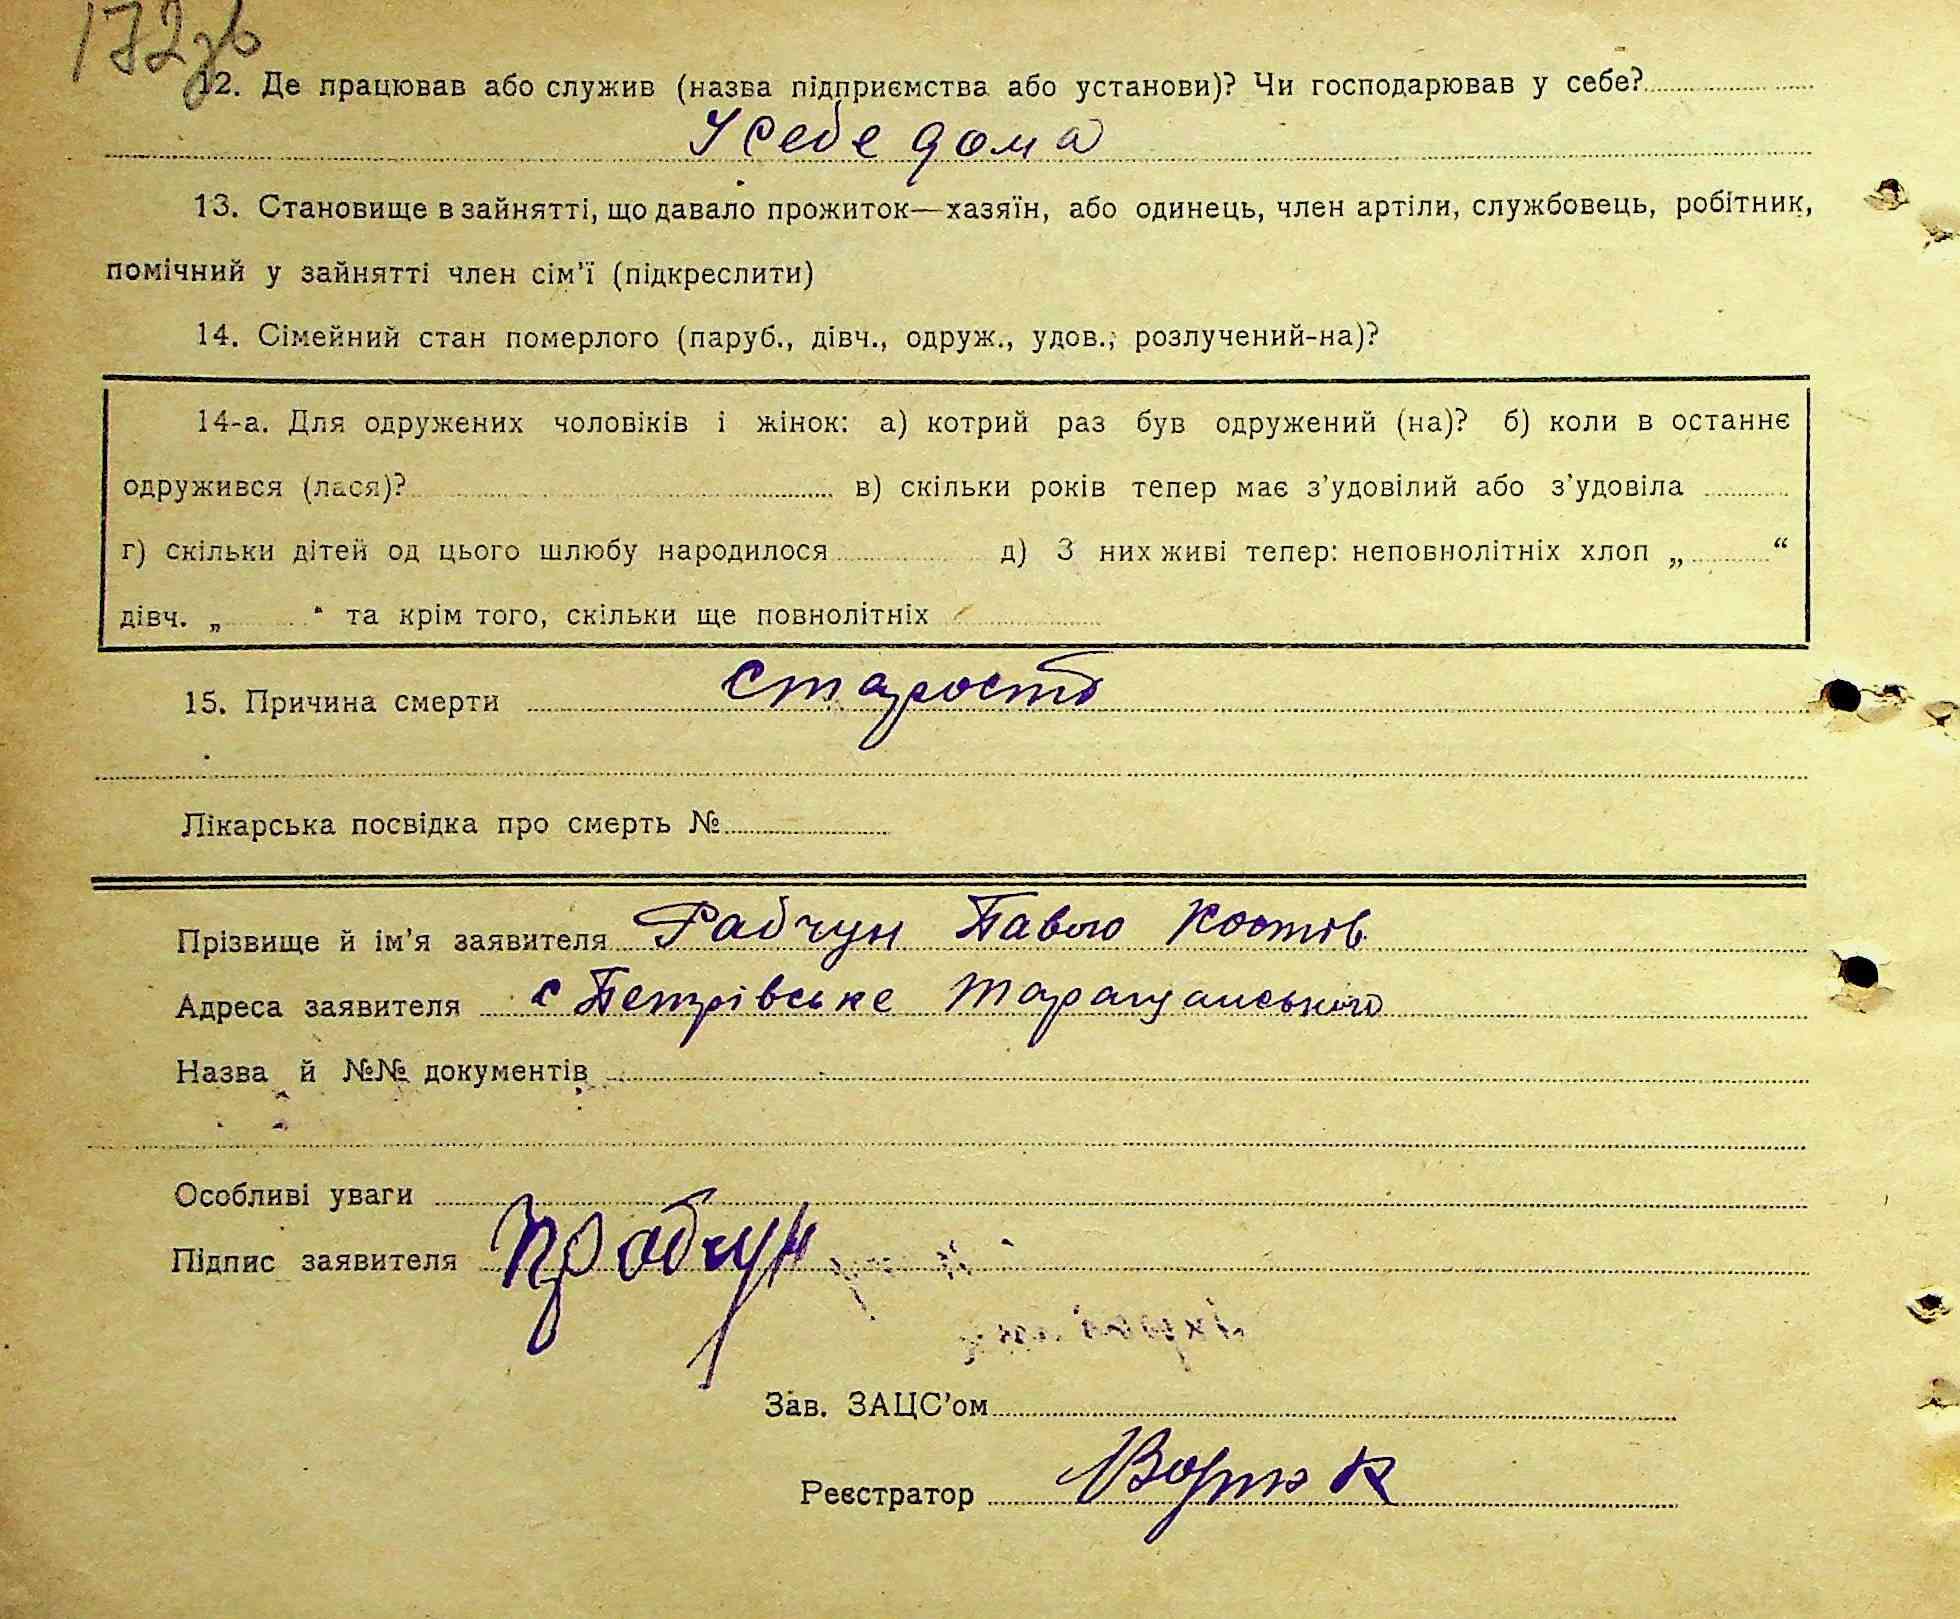 172зв
12. Де працював або служив (назва підприємства або установи)? Чи господарював у себе?
У себе дома
13. Становище в зайнятті, що давало прожиток—хазяїн, або одинець, член артіли, службовець, робітник,
помічний у зайнятті член сім’ї (підкреслити)
14. Сімейний стан померлого (паруб., дівч., одруж., удов., розлучений-на)?
14-а. Для одружених чоловіків і жінок: а) котрий раз був одружений (на)? б) коли в останнє
одружився (лася)? в) скільки років тепер має з’удовілий або з’удовіла
г) скільки дітей од цього шлюбу народилося д) З них живі тепер: неповнолітніх хлоп „ “
дівч. „ “ та крім того, скільки ще повнолітніх
15. Причина смерти старость
Лікарська посвідка про смерть №
Прізвище й ім’я заявителя Рабчун Павло Костів
Адреса заявителя с Петрівське Таращанського
Назва й №№ документів
Особливі уваги
Підпис заявителя ПРабчун
Зав. ЗАЦС’ом
Реєстратор